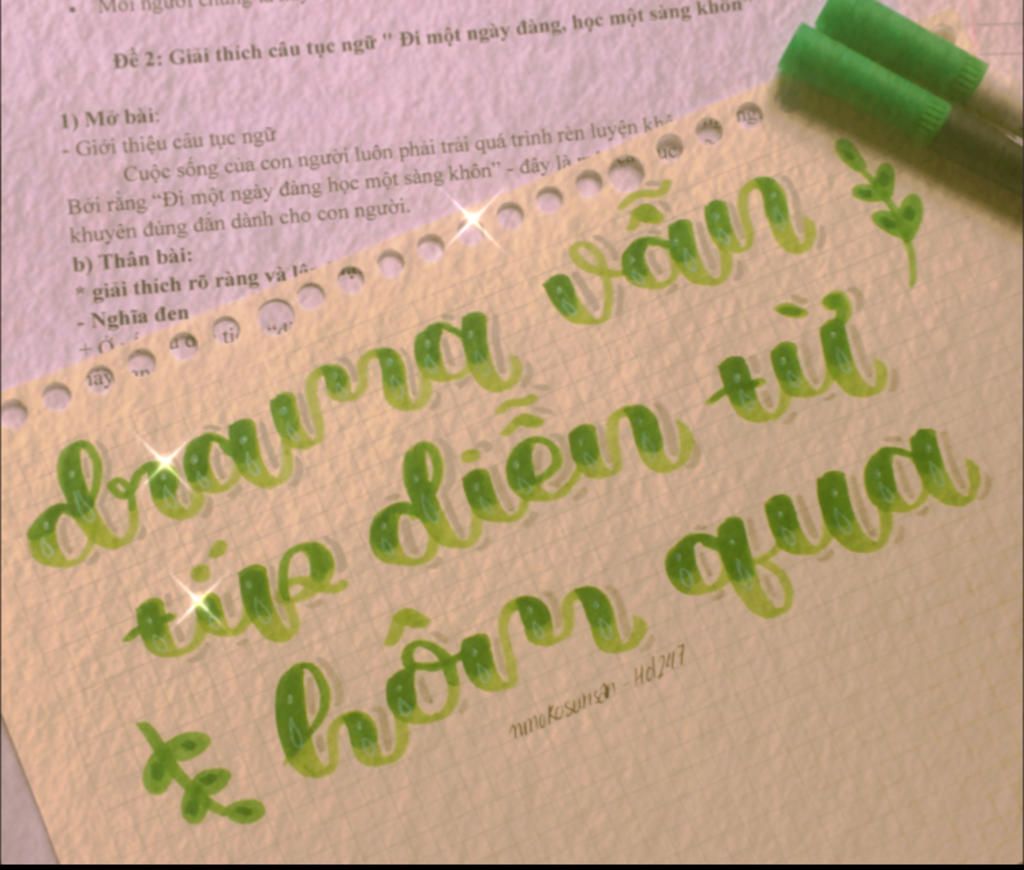 Mỗi người chúng
Đề 2: Giải thích câu tục ngữ " Đi một ngày đàng, học một sàng khôn"
1) Mở bài:
- Giới thiệu câu tục ngữ
Cuộc sống của con người luôn phải trải quá trình rèn luyện
Bởi rằng “Đi một ngày đàng học một sàng khôn” - đây là
khuyên đúng đắn dành cho con người.
b) Thân bài:
* giải thích rõ ràng và
- Nghĩa đen
drama vẫn
típ diễn từ
hôm qua
- Hd247